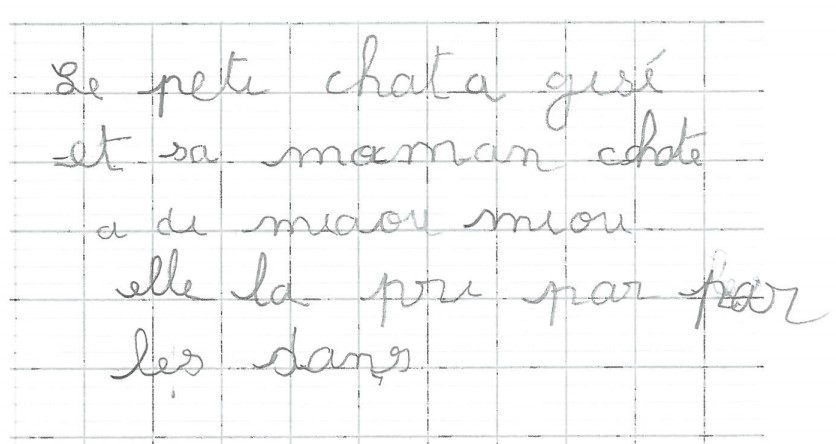 Le peti chat a gisé
et sa maman chate
a di miaou miou
elle la pri par par
les dans